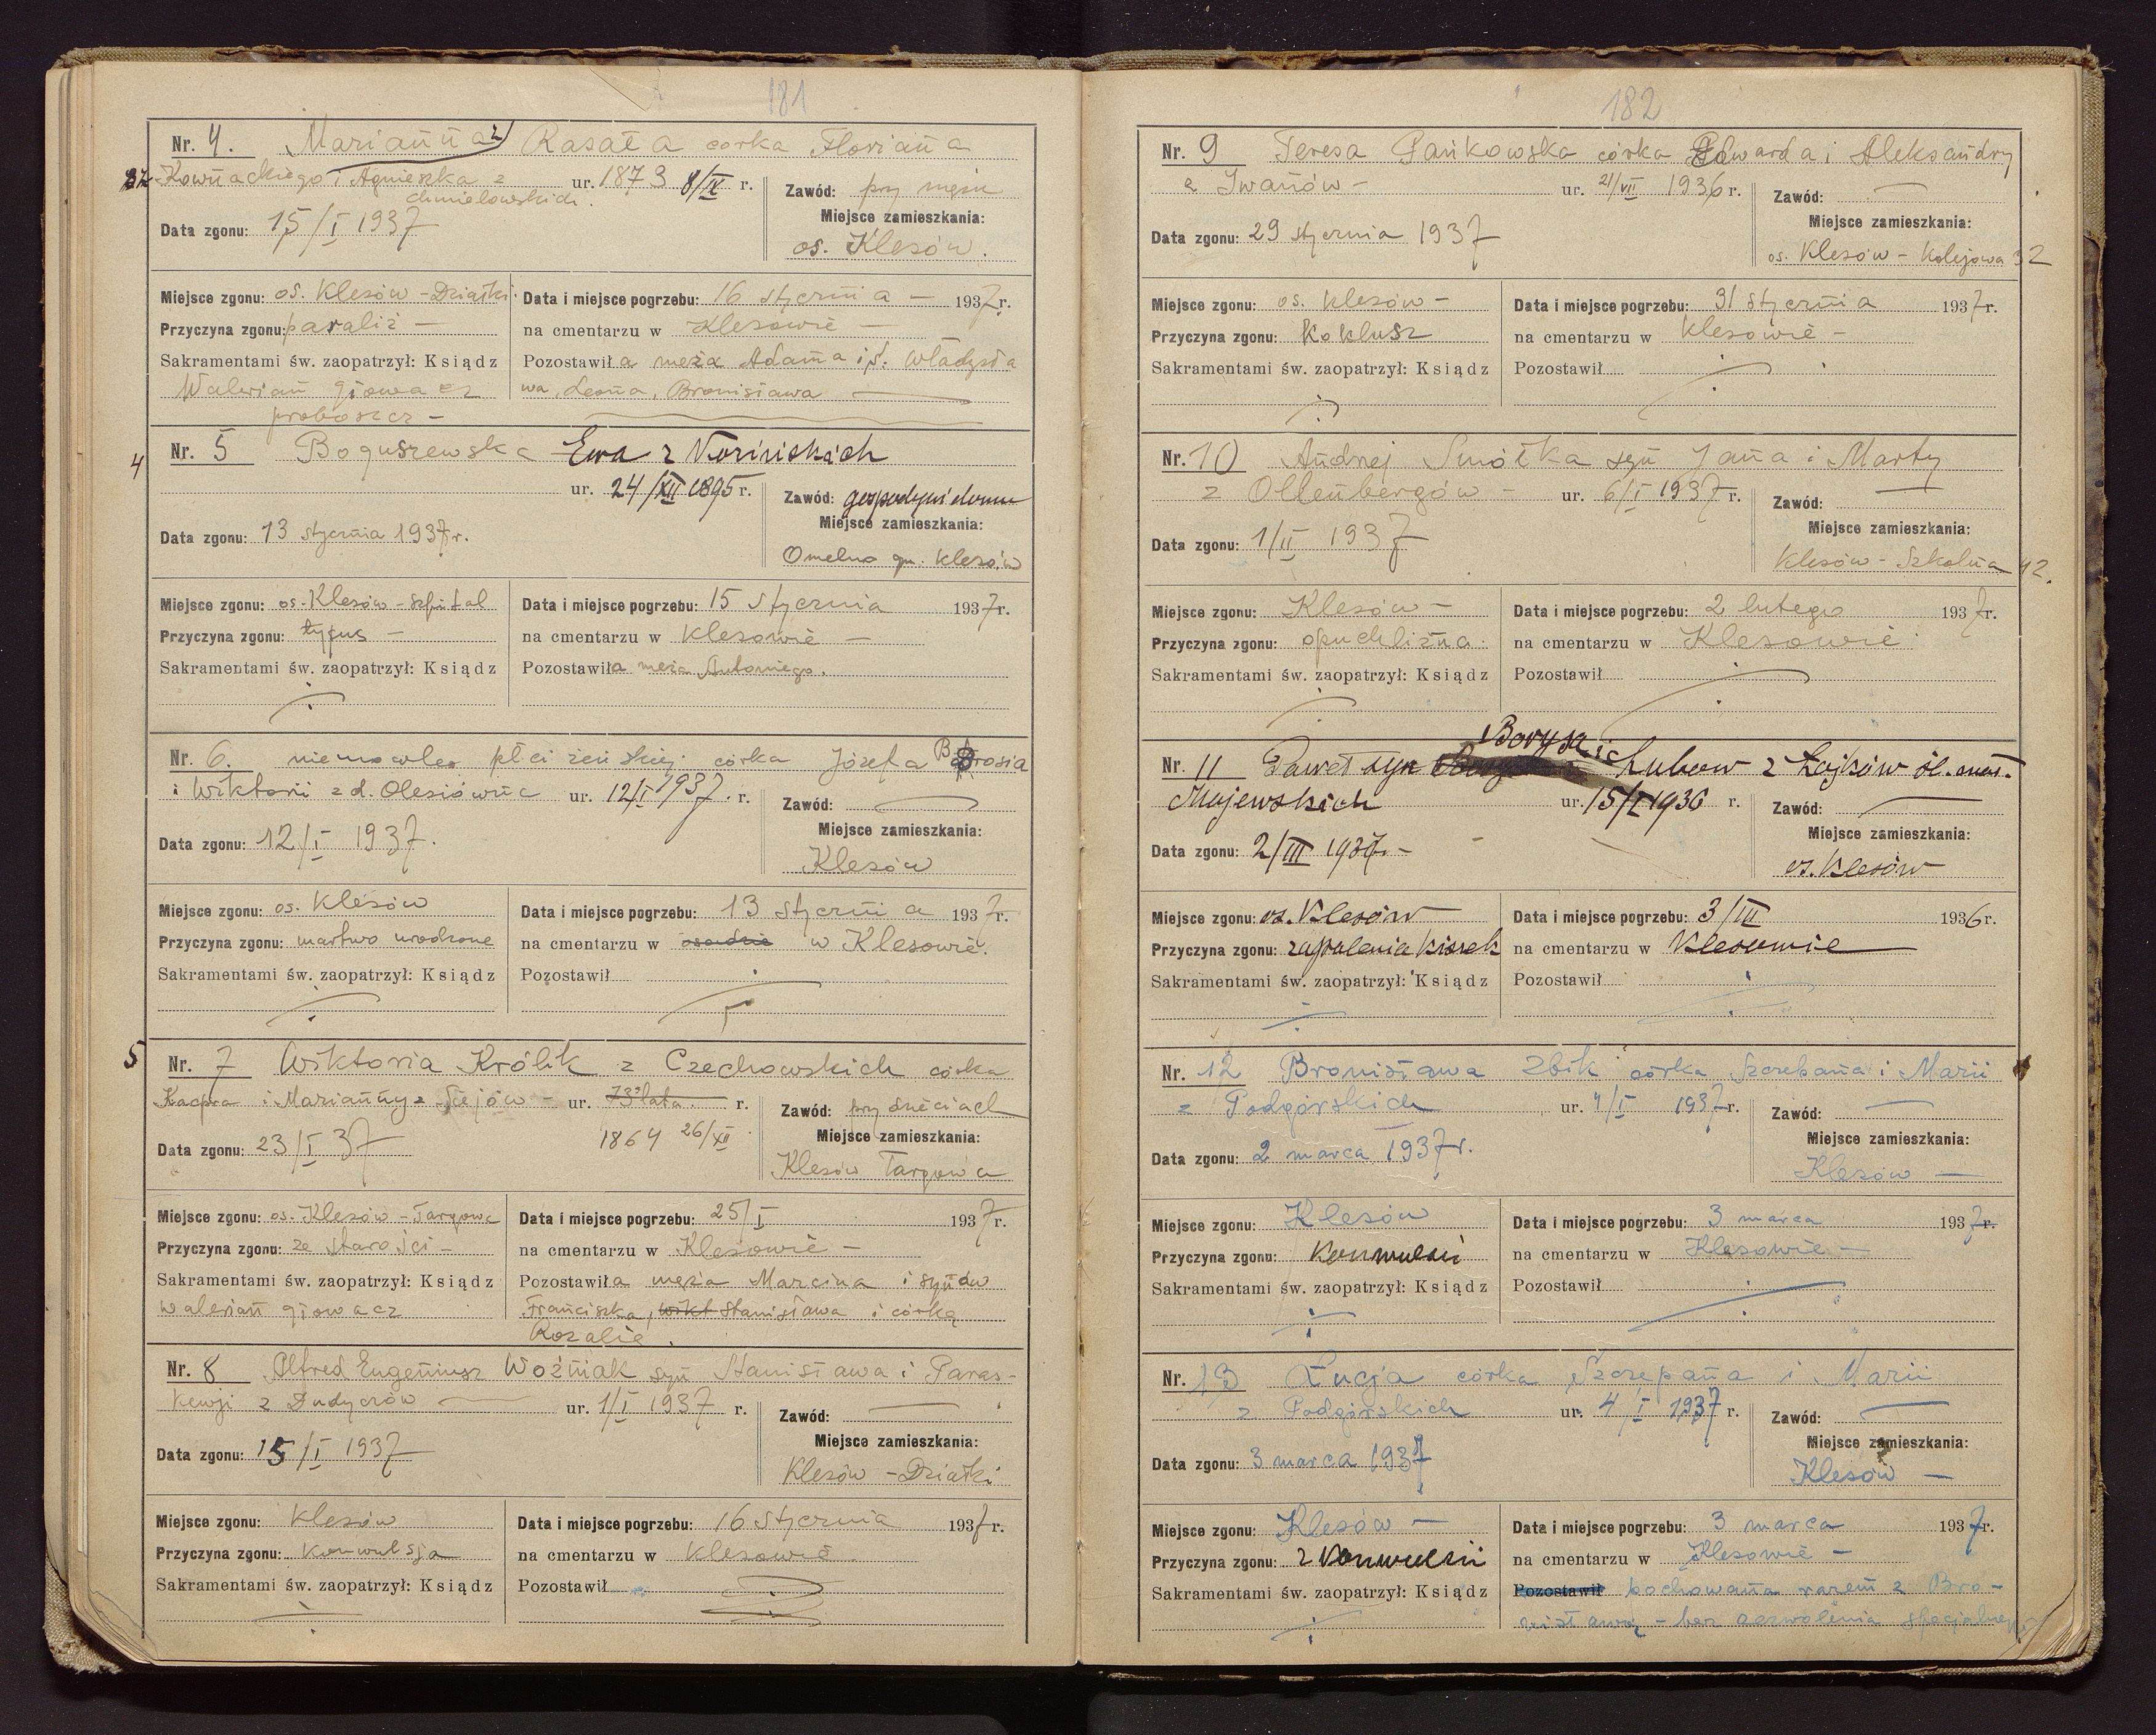 181
Nr. 4. Marianna Rasała córka Floriana
Kownackiego i Agnieszka z
chmielowskich. ur. 1873 8/IV r. Zawód: przy mężu
Data zgonu: 15/I 1937 Miejsce zamieszkania:
os. Klesów.
Miejsce zgonu: os. Klesów - Działki. Data i miejsce pogrzebu: 16 stycznia — 1937 r.
Przyczyna zgonu: paraliż — na cmentarzu w Klesowie —
Sakramentami św. zaopatrzył: Ksiądz Pozostawiła męża Adama i s. Władysła
Walerian Głowacz wa, Leona, Bronisława —
proboszcz —
4
Nr. 5 Boguszewska Ewa z
ur. 24/XII 1895 r. Zawód: gospodyni domu
Data zgonu: 13 stycznia 1937 r. Miejsce zamieszkania:
Omelno gm. Klesów
Miejsce zgonu: os. Klesów - szpital Data i miejsce pogrzebu: 15 stycznia 1937 r.
Przyczyna zgonu: tyfus — na cmentarzu w Klesowie —
Sakramentami św. zaopatrzył: Ksiądz Pozostawiła męża Antoniego.
Nr. 6. niemowlę płci żeńskiej córka Józefa
i Wiktorii z d. Olesiówna ur. 12/I 1937. r. Zawód: —
Data zgonu: 12/I 1937. Miejsce zamieszkania:
Klesów
Miejsce zgonu: os. Klesów Data i miejsce pogrzebu: 13 stycznia 1937 r.
Przyczyna zgonu: martwo urodzone na cmentarzu w osadzie w Klesowie.
Sakramentami św. zaopatrzył: Ksiądz Pozostawił
5
Nr. 7 Wiktoria Królik z Czechowskich córka
Kacpra i Marianny z ur. 73 lata. r. Zawód: przy dzieciach
Data zgonu: 23/I 37 1864 26/XII Miejsce zamieszkania:
Klesów Targowa
Miejsce zgonu: os. Klesów - Targowa Data i miejsce pogrzebu: 25/I 1937 r.
Przyczyna zgonu: ze starości — na cmentarzu w Klesowie —
Sakramentami św. zaopatrzył: Ksiądz Pozostawiła męża Marcina i synów
walerian głowacz Franciszka, wikt Stanisława i córkę
Rozalię.
Nr. 8 Alfred Eugeniusz Woźniak syn Stanisława i Paras-
kewji z Dudyczów — ur. 1/I 1937 r. Zawód: —
Data zgonu: 15/I 1937 Miejsce zamieszkania:
Klesów - Działki
Miejsce zgonu: Klesów Data i miejsce pogrzebu: 16 stycznia 1937 r.
Przyczyna zgonu: Konwulsja na cmentarzu w Klesowie
Sakramentami św. zaopatrzył: Ksiądz Pozostawił
182
Nr. 9 Teresa Pańkowska córka Edwarda i Aleksandry
z Iwanów — ur. 21/VII 1936 r. Zawód: —
Data zgonu: 29 stycznia 1937 Miejsce zamieszkania:
os. Klesów - Kolejowa 32
Miejsce zgonu: os. Klesów — Data i miejsce pogrzebu: 31 stycznia 1937 r.
Przyczyna zgonu: Koklusz na cmentarzu w Klesowie —
Sakramentami św. zaopatrzył: Ksiądz Pozostawił
Nr. 10 Andrzej Smółka syn Jana i Marty
z Ollenbergów — ur. 6/I 1937 r. Zawód: —
Data zgonu: 1/II 1937 Miejsce zamieszkania:
Klesów - Szkolna 12.
Miejsce zgonu: Klesów — Data i miejsce pogrzebu: 2 lutego 1937 r.
Przyczyna zgonu: opuchlizna na cmentarzu w Klesowie
Sakramentami św. zaopatrzył: Ksiądz Pozostawił
Borysa i
Nr. 11 Paweł syn Lubow z Łojków
Majewskich ur. 15/I 1936 r. Zawód: —
Data zgonu: 2/III 1937. — Miejsce zamieszkania:
os. Klesów
Miejsce zgonu: os. Klesów Data i miejsce pogrzebu: 3/III 1936 r.
Przyczyna zgonu: zapalenia kiszek na cmentarzu w Klesowie
Sakramentami św. zaopatrzył: Ksiądz Pozostawił
Nr. 12 Bronisława Zbik córka Szczepana i Marii
z Podgórskich ur. 4/I 1937 r. Zawód: —
Data zgonu: 2 marca 1937 r. Miejsce zamieszkania:
Klesów —
Miejsce zgonu: Klesów Data i miejsce pogrzebu: 3 marca 1937 r.
Przyczyna zgonu: Konwulsii na cmentarzu w Klesowie —
Sakramentami św. zaopatrzył: Ksiądz Pozostawił
Nr. 13 Łucja córka Szczepana i Marii
z Podgórskich ur. 4/I 1937 r. Zawód: —
Data zgonu: 3 marca 1937 Miejsce zamieszkania:
Klesów —
Miejsce zgonu: Klesów — Data i miejsce pogrzebu: 3 marca 1937 r.
Przyczyna zgonu: z Konwulsii na cmentarzu w Klesowie —
Sakramentami św. zaopatrzył: Ksiądz Pozostawił pochowana razem z Bro-
nisławą — bez zezwolenia specjalnego